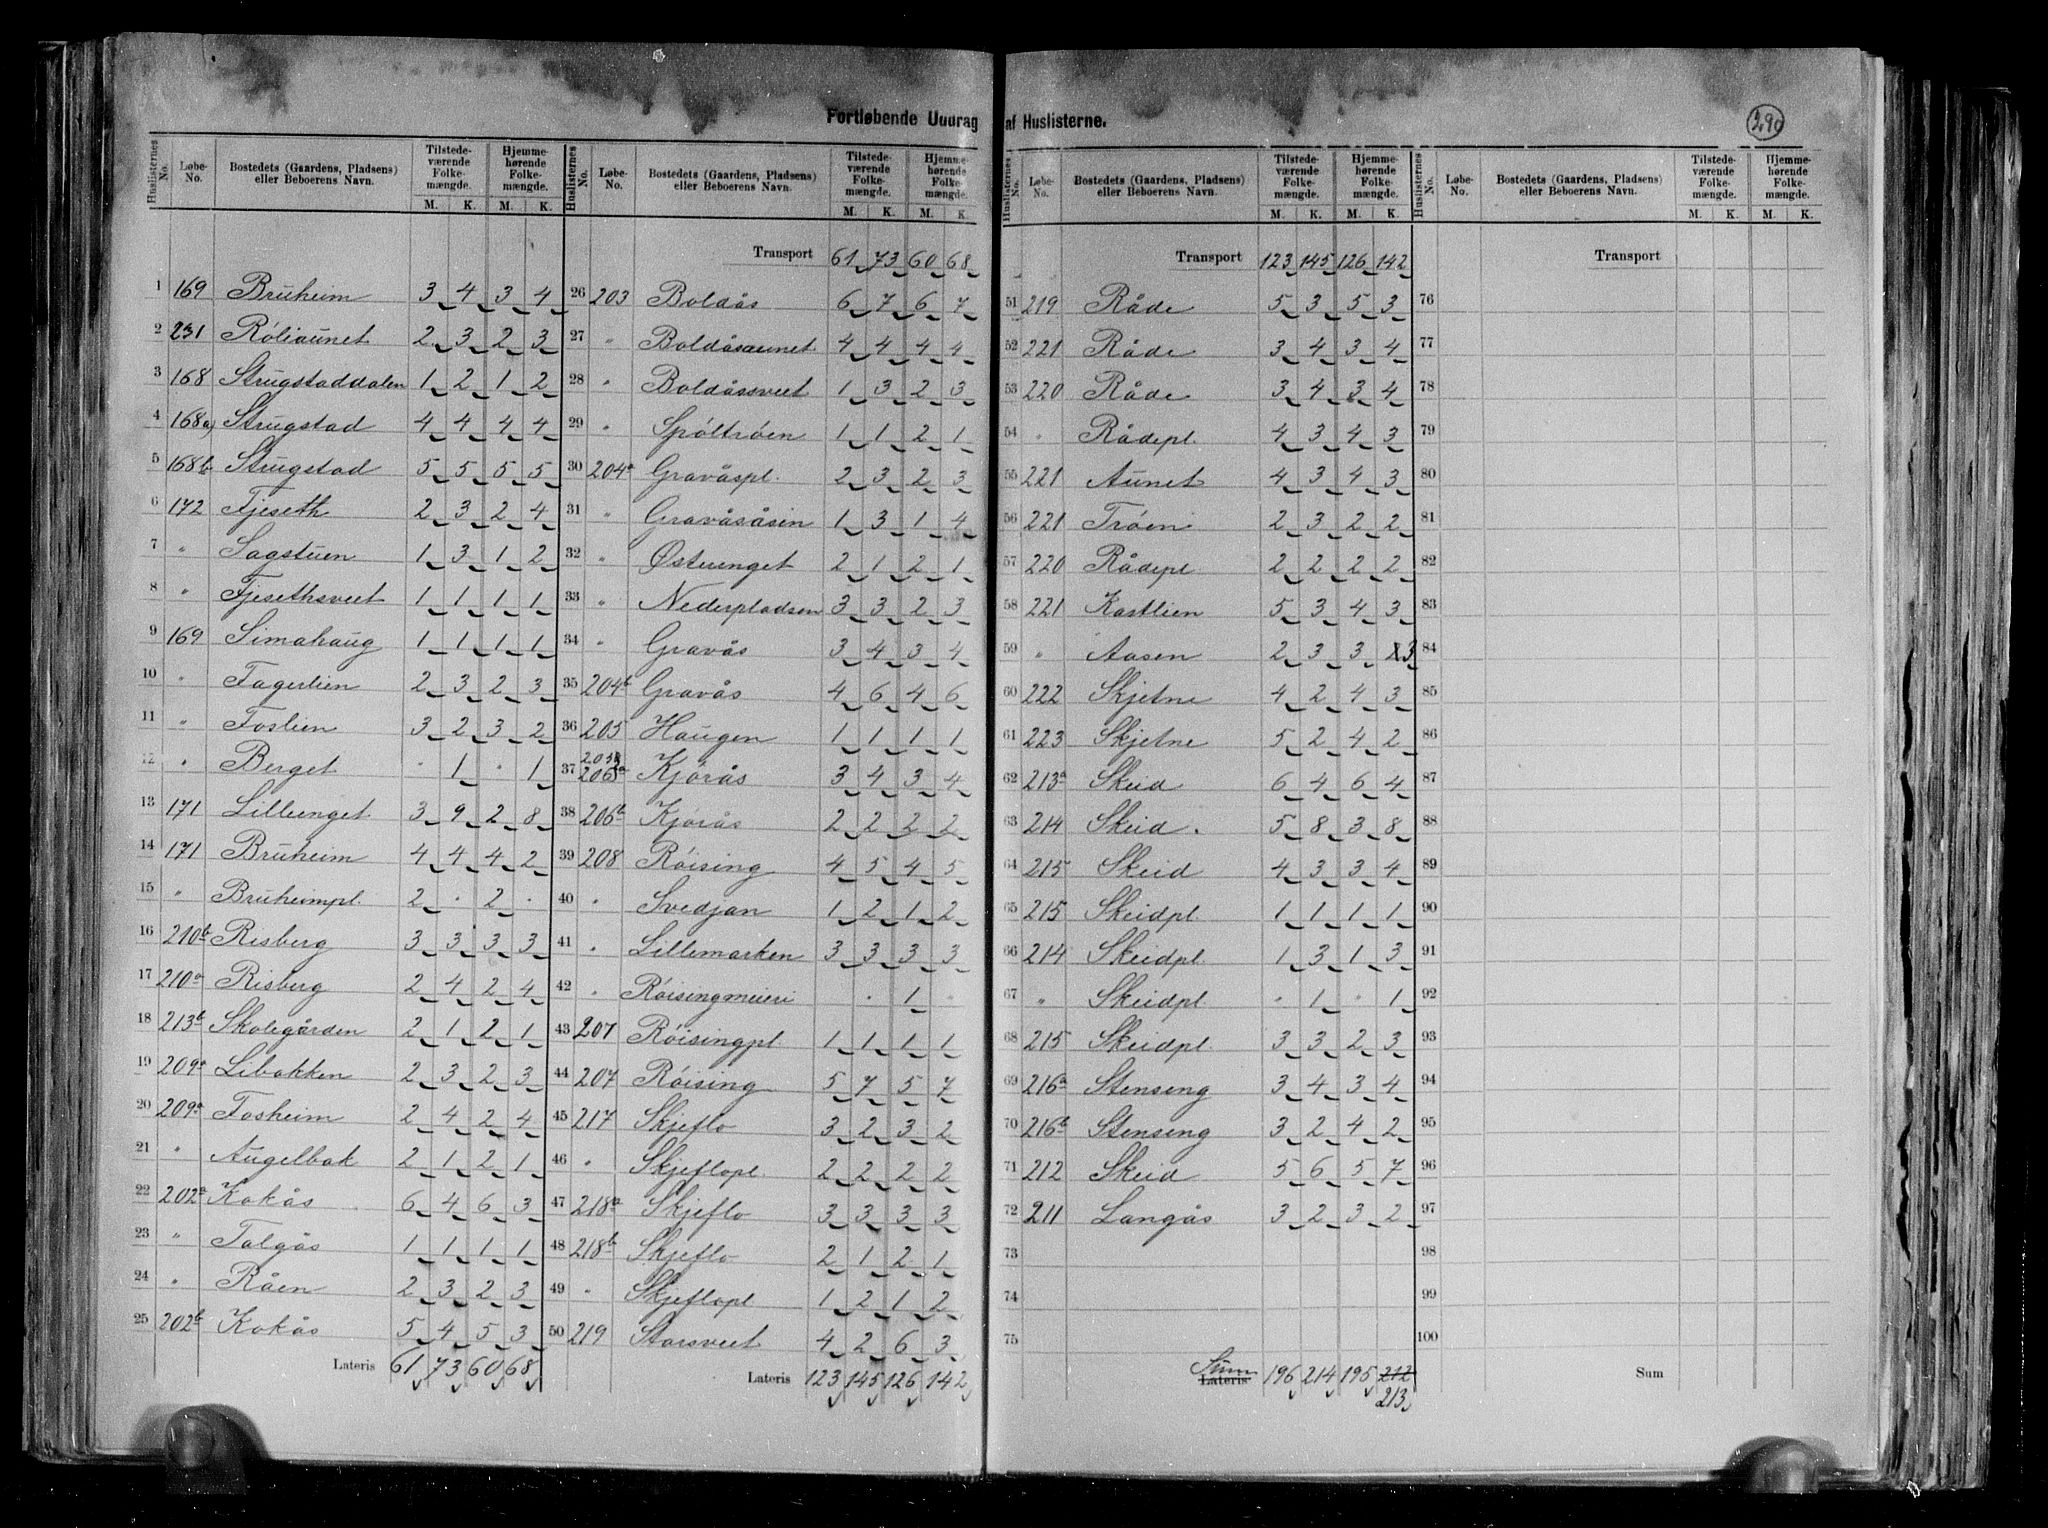 Fortløbende Uddrag af Huslisterne.
290
Huslisternes No. | Løbe-No. | Bostedets (Gaardens, Pladsens) eller Beboerens Navn. | Tilstedeværende Folkemængde. M. K. | Hjemmehørende Folkemængde. M. K.
1 169 Bruheim 3 4 3 4
2 231 Róliaunet 2 3 2 3
3 168 Strugstaddalen 1 2 1 2
4 168a) Strugstad 4 4 4 4
5 168b Strugstad 5 5 5 5
6 172 Fjeseth 2 3 2 4
7 " Sagstuen 1 3 1 2
8 " Fjesethsveet 1 1 1 1
9 169 Simahaug 1 1 1 1
10 " Fagerlien 2 3 2 3
11 " Foslien 3 2 3 2
12 " Berget · 1 · 1
13 171 Lilleenget 3 9 2 8
14 171 Bruheim 4 4 4 2
15 " Bruheimpl. 2 · 2 ·
16 210b Risberg 3 3 3 3
17 210a Risberg 2 4 2 4
18 213b Skolegården 2 1 2 1
19 209a Libakken 2 3 2 3
20 209a Fosheim 2 4 2 4
21 " Augelbak 2 1 2 1
22 202a Kokås 6 4 6 3
23 " Talgås 1 1 1 1
24 " Råen 2 3 2 3
25 202b Kokås 5 4 5 3
Lateris 61 73 60 68
Huslisternes No. | Løbe-No. | Bostedets (Gaardens, Pladsens) eller Beboerens Navn. | Tilstedeværende Folkemængde. M. K. | Hjemmehørende Folkemængde. M. K.
Transport 61 73 60 68
26 203 Boldås 6 7 6 7
27 " Boldåsaunet 4 4 4 4
28 " Boldåssveet 1 3 2 3
29 " Spóltróen 1 1 2 1
30 204a Gravåspl. 2 3 2 3
31 " Gravåsåsen 1 3 1 4
32 " Østerenget 2 1 2 1
33 " Nederpladsen 3 3 2 3
34 " Gravås 3 4 3 4
35 204b Gravås 4 6 4 6
36 205 Haugen 1 1 1 1
37 206a Kjórås 3 4 3 4
38 206b Kjórås 2 2 2 2
39 208 Róising 4 5 4 5
40 " Svedjan 1 2 1 2
41 " Lillemarken 3 3 3 3
42 " Róisingmeieri · 1 "
43 207 Róisingpl 1 1 1 1
44 207 Róising 5 7 5 7
45 217 Skjeflo 3 2 3 2
46 " Skjeflopl. 2 2 2 2
47 218a Skjeflo 3 3 3 3
48 218b Skjeflo 2 1 2 1
49 " Skjeflopl 1 2 1 2
50 219 Storsveet 4 2 6 3
Lateris 123 145 126 142
Huslisternes No. | Løbe-No. | Bostedets (Gaardens, Pladsens) eller Beboerens Navn. | Tilstedeværende Folkemængde. M. K. | Hjemmehørende Folkemængde. M. K.
Transport 123 145 126 142
51 219 Råde 5 3 5 3
52 221 Råde 3 4 3 4
53 220 Råde 3 4 3 4
54 " Rådepl. 4 3 4 3
55 221 Aunet 4 3 4 3
56 221 Tróen 2 3 2 2
57 220 Rådepl 2 2 2 2
58 221 Kastlien 5 3 4 3
59 " Aasen 2 3 3 3
60 222 Skjetne 4 2 4 3
61 223 Skjetne 5 2 4 2
62 213a Skeid 6 4 6 4
63 214 Skeid. 5 8 3 8
64 215 Skeid 4 3 3 4
65 215 Skeidpl. 1 1 1 1
66 214 Skeidpl. 1 3 1 3
67 " Skeidpl. " 1 " 1
68 215 Skeidpl. 3 3 2 3
69 216a Stenseng 3 4 3 4
70 216b Stenseng 3 2 4 2
71 212 Skeid 5 6 5 7
72 211 Langås 3 2 3 2
73
74
75
Sum Lateris 196 214 195 212
213
Huslisternes No. | Løbe-No. | Bostedets (Gaardens, Pladsens) eller Beboerens Navn. | Tilstedeværende Folkemængde. M. K. | Hjemmehørende Folkemængde. M. K.
Transport
76
77
78
79
80
81
82
83
84
85
86
87
88
89
90
91
92
93
94
95
96
97
98
99
100
Sum